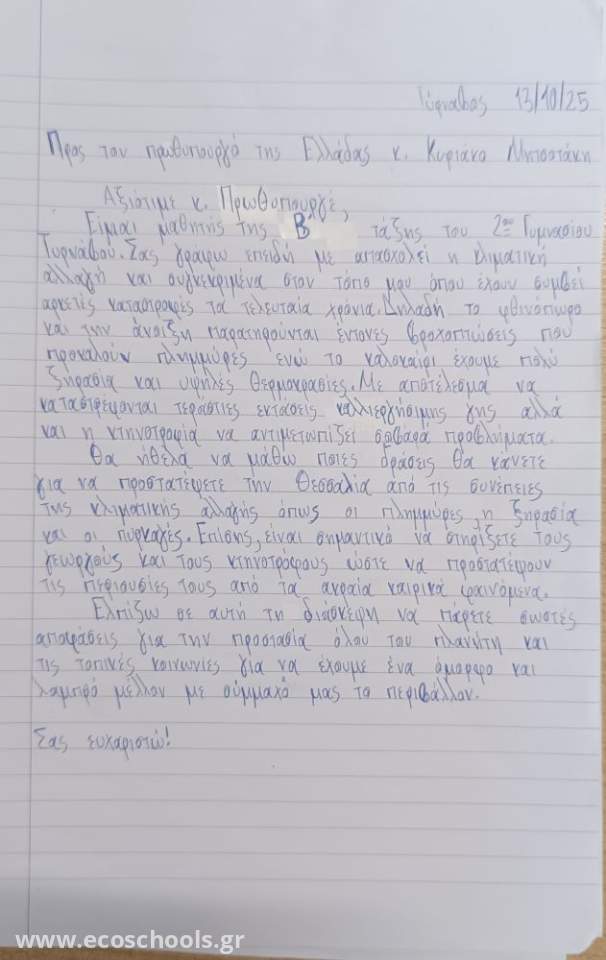 Τύρναβος 13/10/25
Προς τον πρωθυπουργό της Ελλάδας κ. Κυριάκο Μητσοτάκη
Αξιότιμε κ. Πρωθυπουργέ,
Είμαι μαθητής της Β τάξης του 2ου Γυμνασίου
Τυρνάβου. Σας γράφω επειδή με απασχολεί η κλιματική
αλλαγή και συγκεκριμένα στον τόπο μου όπου έχουν συμβεί
αρκετές καταστροφές τα τελευταία χρόνια. Δηλαδή το φθινόπωρο
και την άνοιξη παρατηρούνται έντονες βροχοπτώσεις που
προκαλούν πλημμύρες ενώ το καλοκαίρι έχουμε πολύ
ξηρασία και υψηλές θερμοκρασίες. Με αποτέλεσμα να
καταστρέφονται τεράστιες εκτάσεις καλλιεργήσιμης γης αλλά
και η κτηνοτροφία να αντιμετωπίζει σοβαρά προβλήματα.
Θα ήθελα να μάθω ποιες δράσεις θα κάνετε
για να προστατέψετε την Θεσσαλία από τις συνέπειες
της κλιματικής αλλαγής όπως οι πλημμύρες, η ξηρασία
και οι πυρκαγές. Επίσης, είναι σημαντικό να στηρίξετε τους
γεωργούς και τους κτηνοτρόφους ώστε να προστατέψουν
τις περιουσίες τους από τα ακραία καιρικά φαινόμενα.
Ελπίζω σε αυτή τη διάσκεψη να πάρετε σωστές
αποφάσεις για την προστασία όλου του πλανήτη και
τις τοπικές κοινωνίες για να έχουμε ένα όμορφο και
λαμπρό μέλλον με σύμμαχό μας το περιβάλλον.
Σας ευχαριστώ!
www.ecoschools.gr